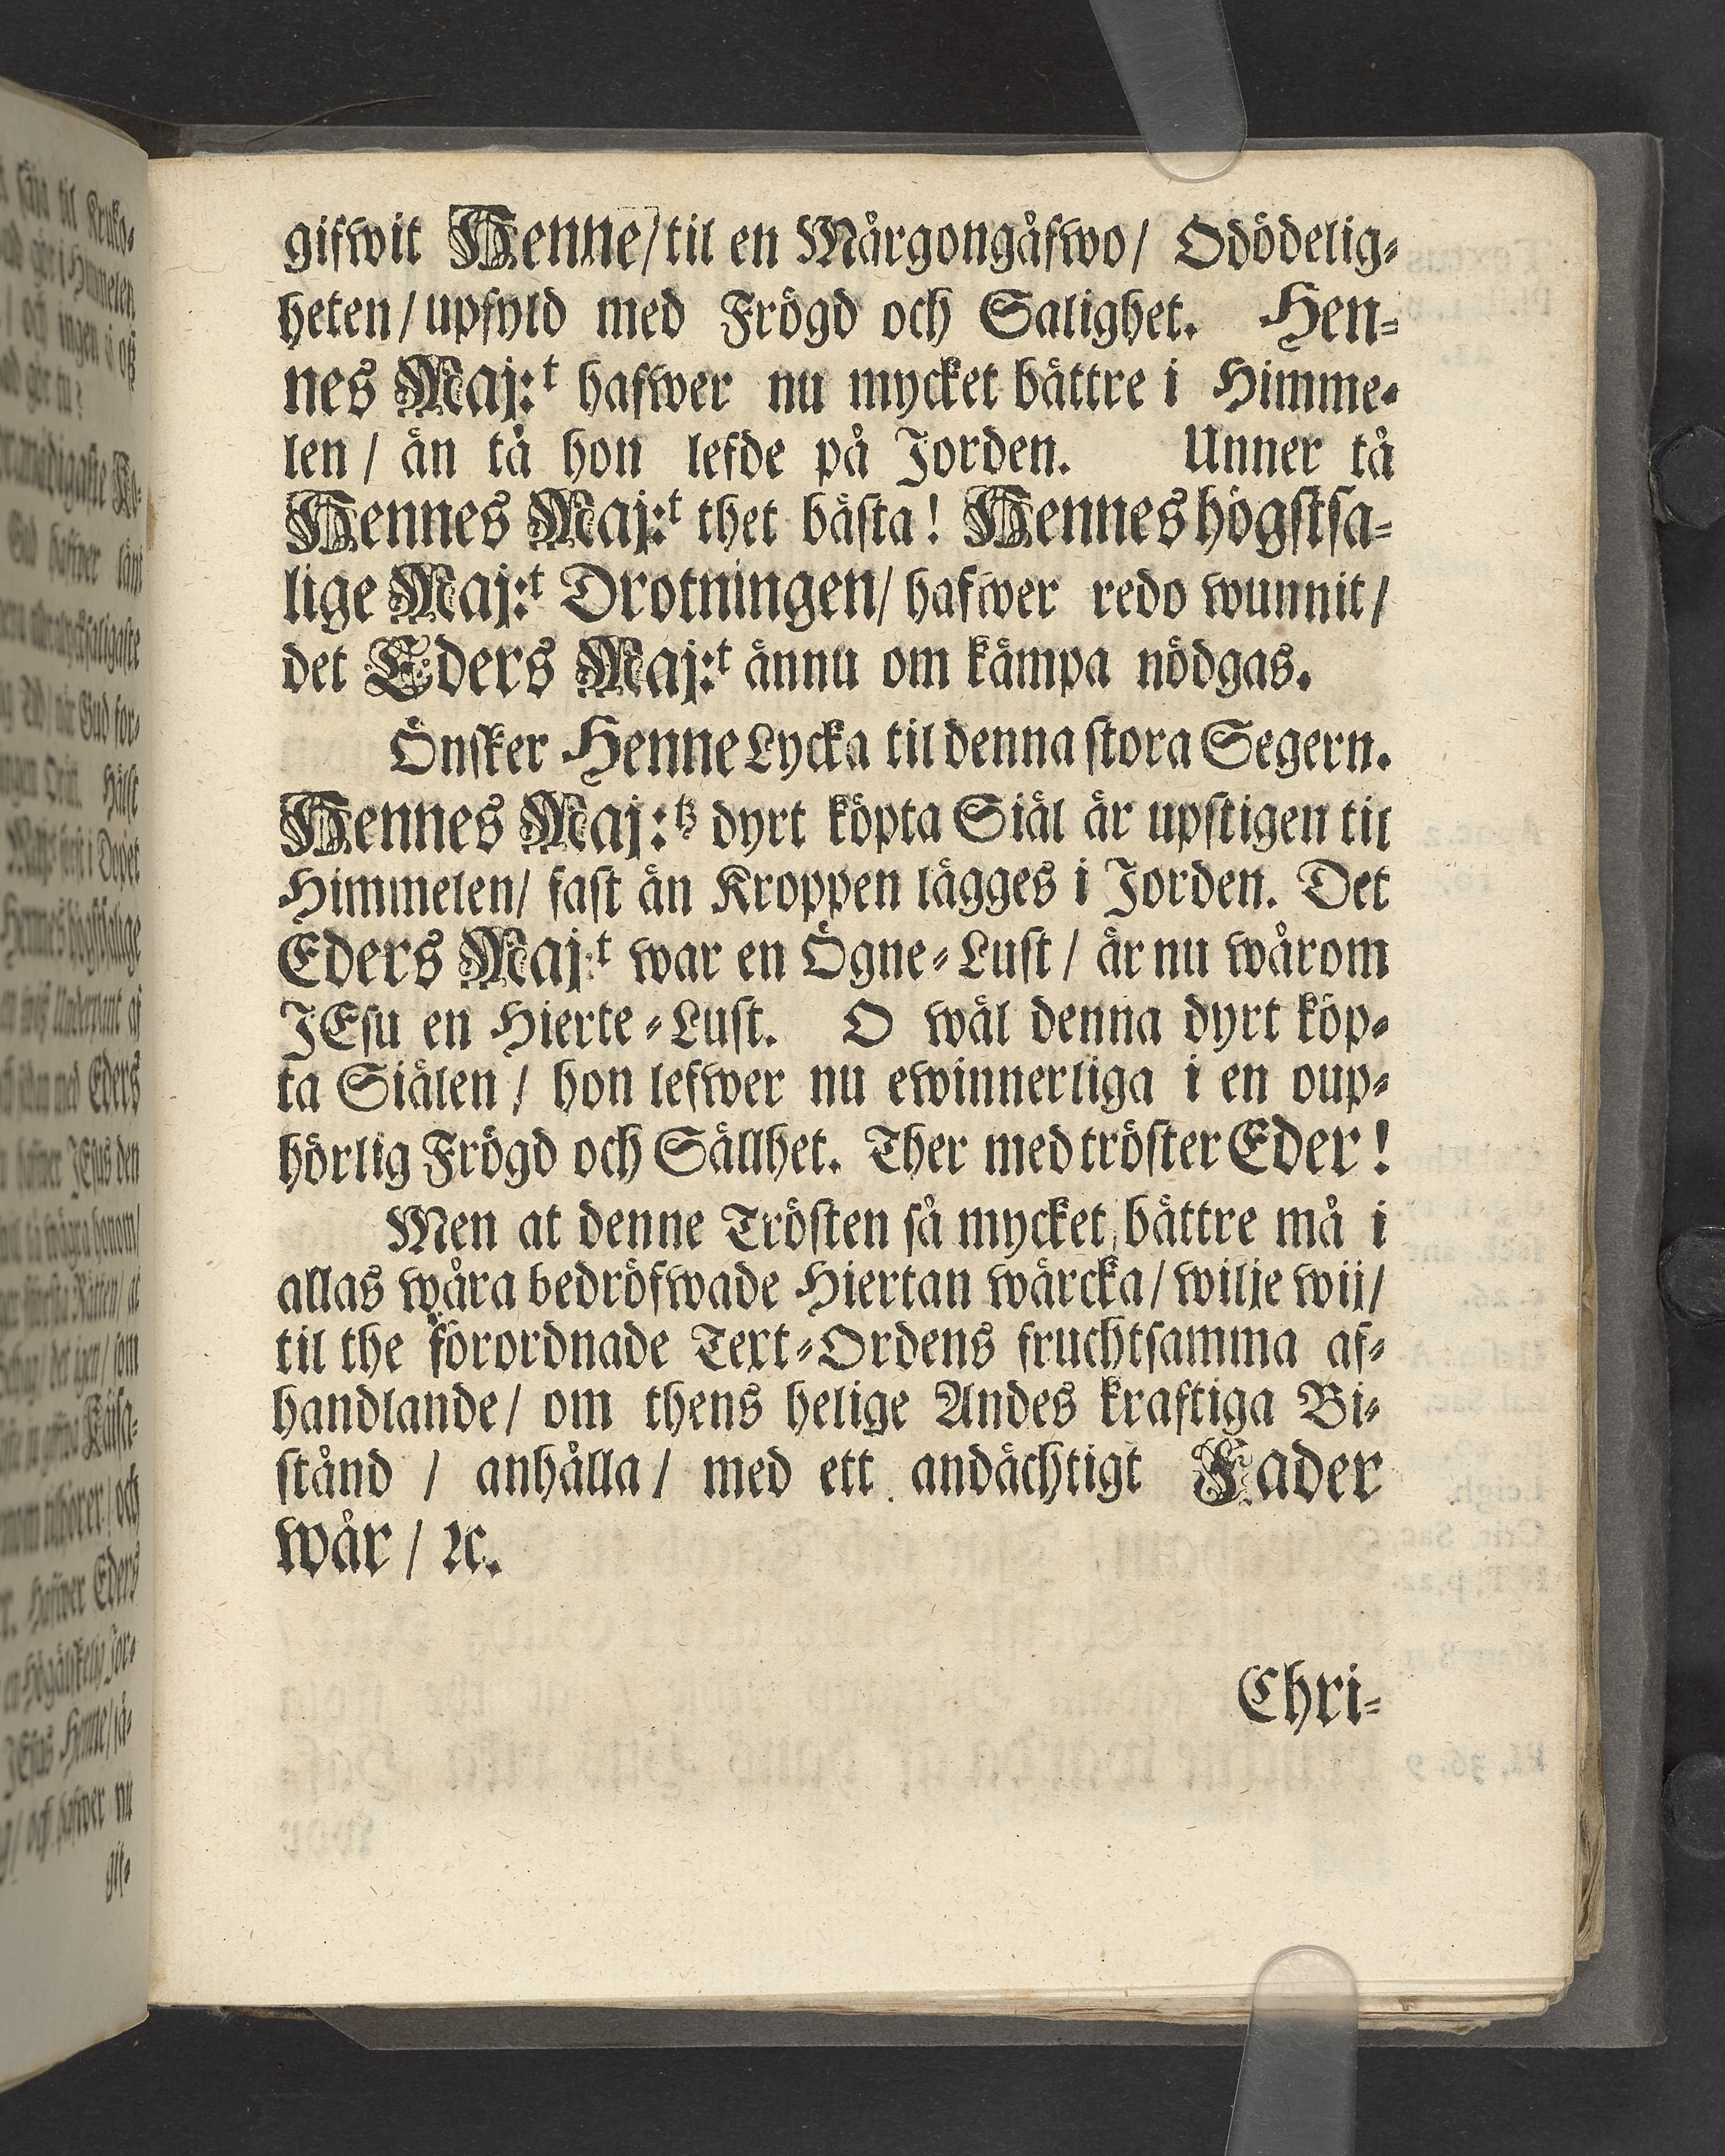 gifwit Henne/til en Mårgongåfwo/ Odödelig-
heten/upfyld med Frögd och Salighet. Hen-
nes Maj:t hafwer nu mycket bättre i Himme-
len/ än tå hon lefde på Jorden. Unner tå
Hennes Maj:t thet bästa! Hennes högstsa-
lige Maj:t Drotningen/ hafwer redo wunnit/
det Eders Maj:t ännu om kämpa nödgas.
Önsker Henne Lycka til denna stora Segern.
Hennes Maj:tz dyrt köpta Siäl är upstigen til
Himmelen/ fast än Kroppen lägges i Jorden. Det
Eders Maj:t war en Ögne-Lust/ är nu wårom
JEsu en Hierte-Lust. O wäl denna dyrt köp-
ta Siälen/ hon lefwer nu ewinnerliga i en oup-
hörlig Frögd och Sällhet. Ther med tröster Eder!
Men at denne Trösten så mycket bättre må i
allas wåra bedröfwade Hiertan wärcka/ wilje wij/
til the förordnade Text-Ordens fruchtsamma af-
handlande/ om thens helige Andes kraftiga Bi-
stånd / anhålla/ med ett andächtigt Fader
wår/ ꝛc.
Chri-